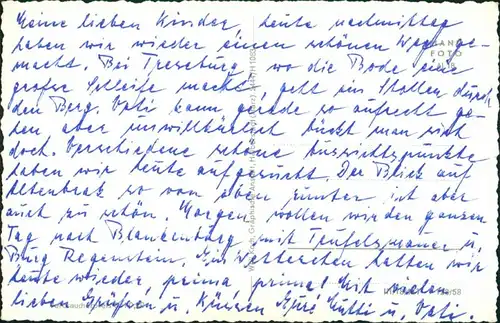 Meine lieben Kinder, heute nachmittag
haben wir wieder einen schönen Weg ge-
macht. Bei Treseburg, wo die Bode eine
große Schleife macht, geht ein Stollen durch
den Berg. Opti kann gerade so aufrecht ge-
hen aber unwillkürlich bückt man sich
doch. Verschiedene schöne Aussichtspunkte
haben wir heute aufgesucht. Der Blick auf
Altenbrak so von oben runter ist aber
auch zu schön. Morgen wollen wir den ganzen
Tag nach Blankenburg mit Teufelsmauer u.
Burg Regenstein. Ein Wetterchen hatten wir
heute wieder, prima, prima! Mit vielen
lieben Grüßen u. Küssen Eure Mutti u. Opti.
FOTO